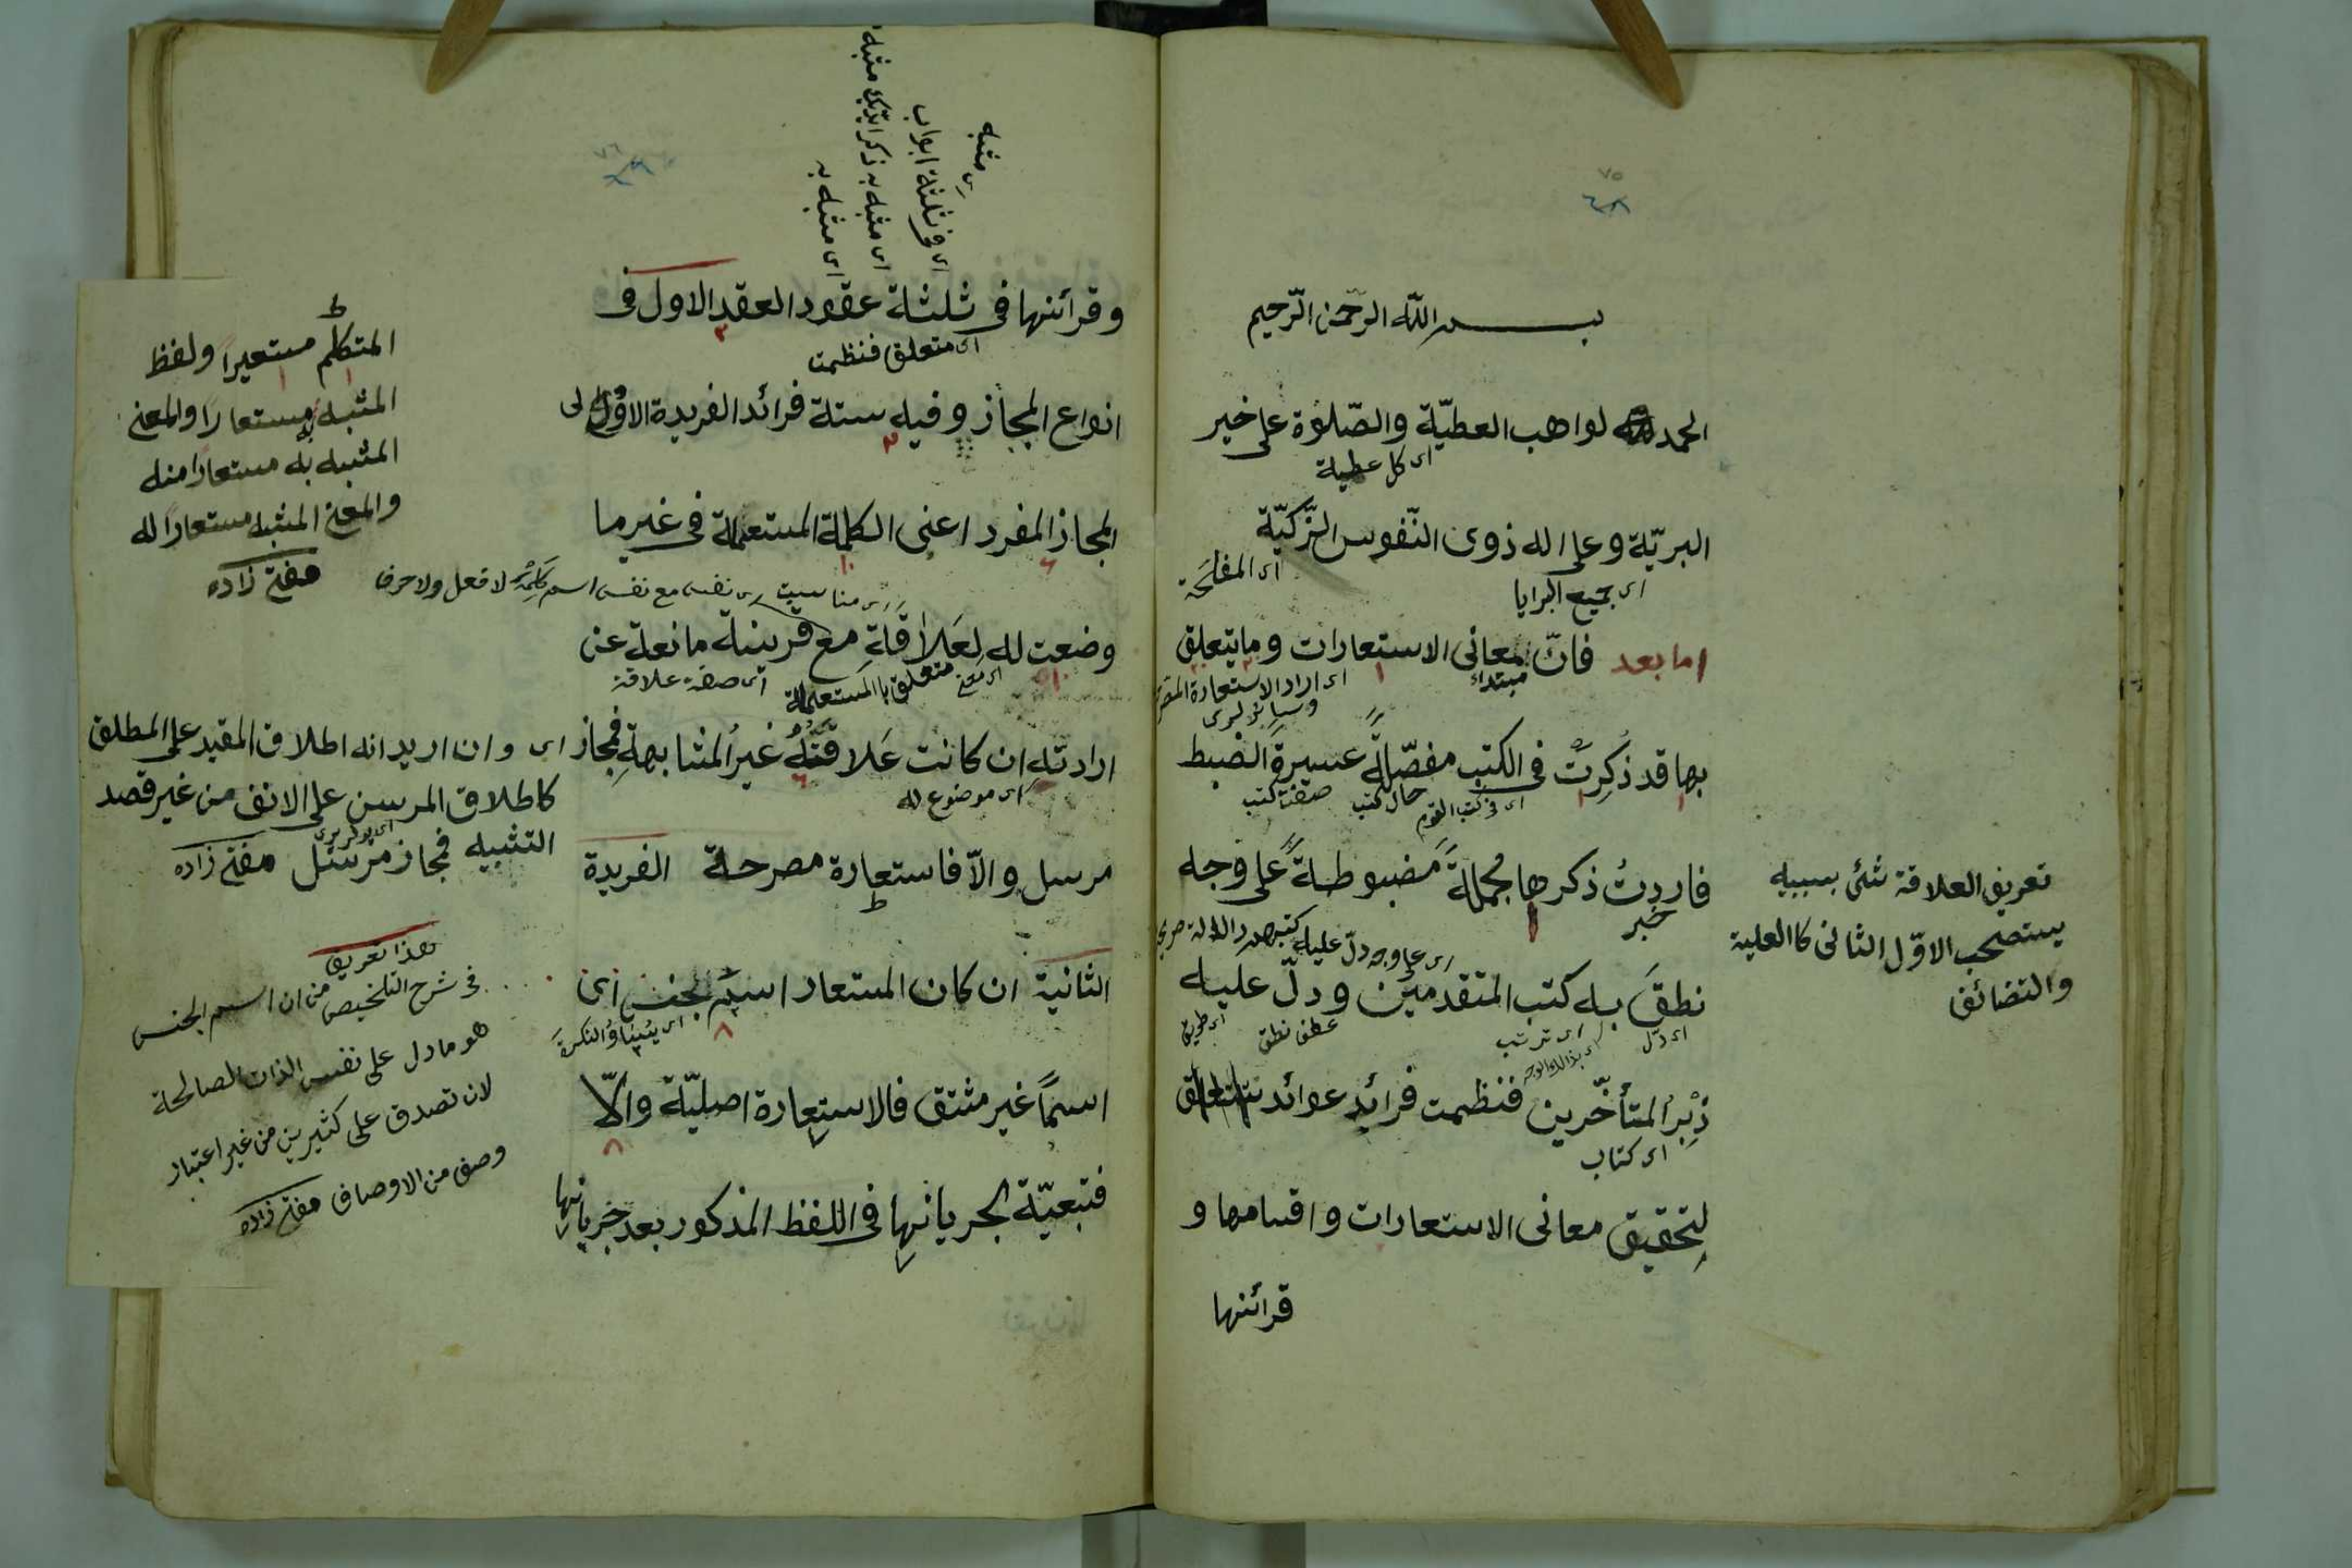 ٧٥
بسم الله الرّحمن الرّحيم
الحمد لواهب العطيّة والصّلوة على خير
اى كل عطية
البريّة وعلى اله ذوى النّفوس الزّكيّة
اى جميع البرايا
اى المفلحة
اما بعد فانّ معانى الاستعارات وما يتعلق
مبتداء
بها قد ذُكِرتْ فى الكتب مفصّلةً عسيرةَ الضبط
اى فى كتب القوم
فاردتُ ذكرها مجملةً مضبوطةً على وجه
خبر
اى على وجه دلّ عليه
نطقَ به كتب المتقدمين ودلّ عليه
اى دلّ
عطف نطق
اى طريق
زُبُر المتأخّرين فنظمت فرائد عوائد
اى كتاب
لتحقيق معانى الاستعارات واقسامها و
قرائنها
تعريف العلاقة شئ بسببه
يستصحب الاوّل الثانى كالعلية
والتضائف
٧٦
وقرائنها فى ثلثة عقود العقد الاول فى
اى متعلق فنظمت
انواع المجاز وفيه ستة فرائد الفريدة الاولى
المجاز المفرد اعنى الكلمة المستعملة فى غير ما
وضعت له لِعَلاقَةٍ مع قرينة مانعة عن
متعلق بالمستعملة
اى صفة علاقة
ارادته ان كانت عَلاقتُهُ غيرُ المشابهةِ فمجاز
اى موضوع له
مرسل والّا فاستعارة مصرحة الفريدة
الثانية ان كان المستعار اسم جنس اى
اسمًا غير مشتق فالاستعارة اصليّة والّا
فتبعيّة لجريانها فى اللفظ المذكور بعد جريانها
اى مشبه به
المتكلم مستعيرًا ولفظ
المشبه به مستعارًا والمعنى
المشبه به مستعارا منه
والمعنى المشبه مستعارًا له
مفتى زاده
اى وان اريد انه اطلاق المقيد على المطلق
كاطلاق المرسن على الانف من غير قصد
التشبيه فمجاز مرسل مفتى زاده
هذا تعريف
فى شرح التلخيص من ان اسم الجنس
هو ما دل على نفس الذات الصالحة
لان تصدق على كثيرين من غير اعتبار
وصف من الاوصاف مفتى زاده